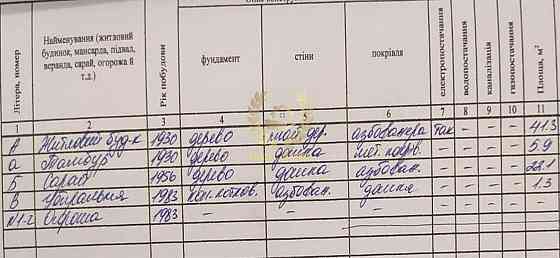 Літера, номер
Найменування (житловий
будинок, мансарда, підвал,
веранда, сарай, огорожа й
т.д.)
Рік побудови
фундамент
стіни
покрівля
електропостачання
водопостачання
каналізація
газопостачання
Площа, м²
1 2 3 4 5 6 7 8 9 10 11
А Житловий буд-к 1930 дерево дер. так - - - 41.3
а Тамбур 1930 дерево дошка мет. - - - - 5.9
Б Сарай 1956 дерево дошка азбован. - - - -
В Убиральня 1983 азбован. дошка - - - - 1.3
N1-2 Огорожа 1983 - - - - - - - -